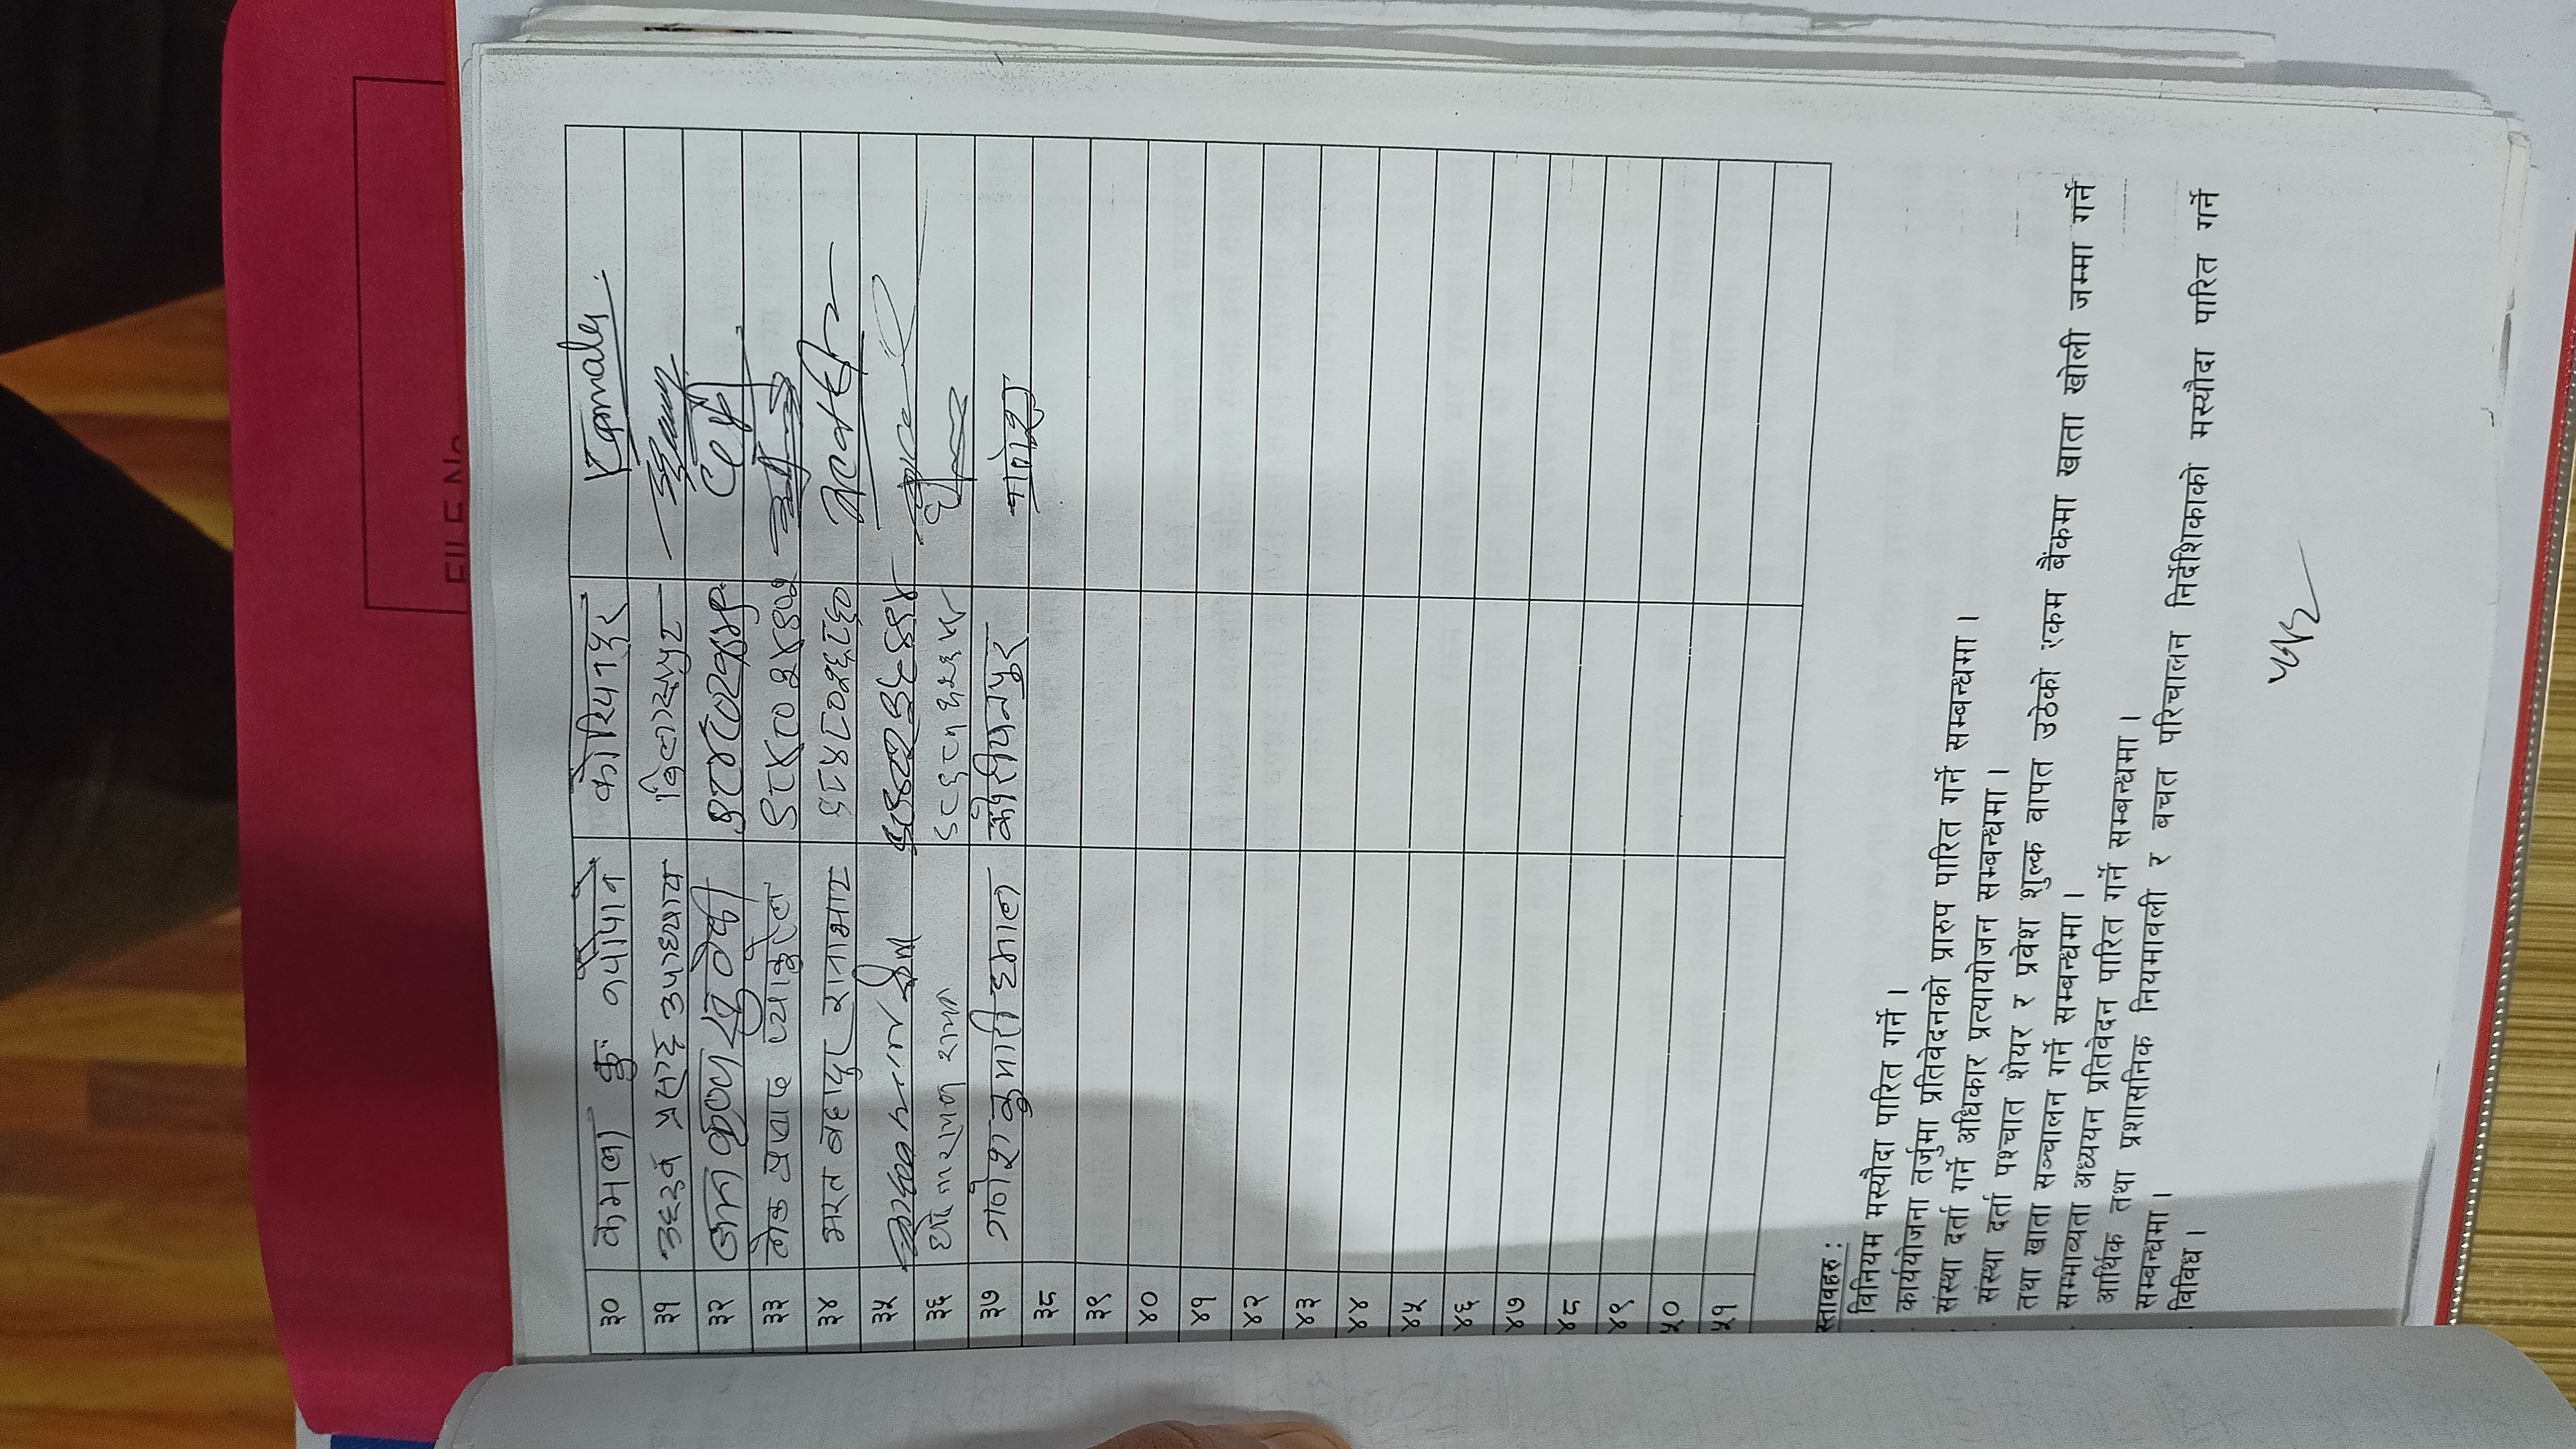 FILE No
३० कमला कु न्यौपाने कोरियनपुर Kamala
३१ उद्दव प्रसाद उपाध्याय विलासपुर
३२ कृष्ण सुवेदी
३३ लोक प्रसाद प्याकुरेल
३४ भरत बहादुर रानाभाट ९८४८०२६८६०
३५
३६ नारायण
३७ गणेश कुमारी हमाल कोरीयनपुर गणेश
३८
३९
४०
४१
४२
४३
४४
४५
४६
४७
४८
४९
५०
५१
स्तावहरु :
विनियम मस्यौदा पारित गर्ने ।
कार्ययोजना तर्जुमा प्रतिवेदनको प्रारुप पारित गर्ने सम्बन्धमा ।
संस्था दर्ता गर्ने अधिकार प्रत्यायोजन सम्बन्धमा ।
संस्था दर्ता पश्चात शेयर र प्रवेश शुल्क वापत उठेको रकम बैंकमा खाता खोली जम्मा गर्ने
तथा खाता सञ्चालन गर्ने सम्बन्धमा ।
सम्भाव्यता अध्ययन प्रतिवेदन पारित गर्ने सम्बन्धमा ।
आर्थिक तथा प्रशासनिक नियमावली र बचत परिचालन निर्देशिकाको मस्यौदा पारित गर्ने
सम्बन्धमा ।
विविध ।